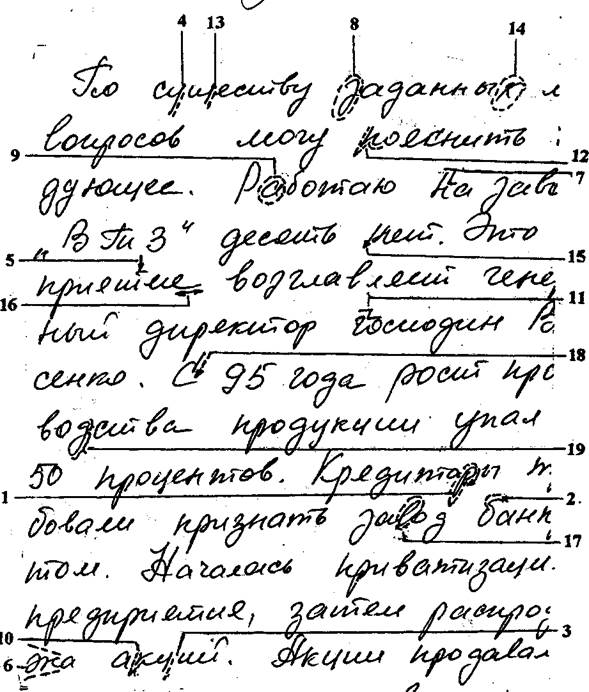 4 13 8 14
По существу заданных
вопросов могу пояснить
9 12
дующее. Работаю на заво
7
„ВТиЗ“ десять лет. Это
5 15
приятие возглавляет гене
16 11
ный директор господин Ро
18
сенко. С 95 года рост про
водства продукции упал
19
50 процентов. Кредиторы т
1 2
бовали признать завод банк
17
том. Началась приватизаци
предприятия, затем распро
10 3
6 жа акций. Акции продавал